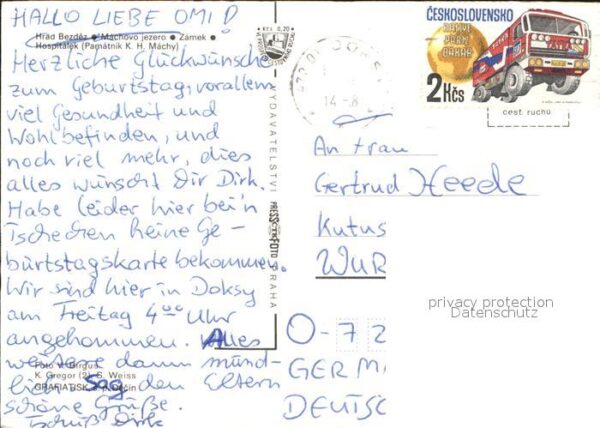 HALLO LIEBE OMI!
Hrad Bezděz • Máchovo jezero • Zámek •
Hospitálek (Památník K. H. Máchy)
Herzliche Glückwünsche
zum Geburtstag, vorallem
viel Gesundheit und
Wohlbefinden, und
noch viel mehr, dies
alles wünscht Dir Dirk.
Habe leider hier bei'n
Tschechen keine Ge-
burtstagskarte bekommen.
Wir sind hier in Doksy
am Freitag 4⁰⁰ Uhr
angekommen. Alles
weitere dann münd-
lich. Sag den Eltern
schöne Grüße.
Tschüß Dirk
K. Gregor (2), S. Weiss
Kčs 0,20
VYDAVATELSTVÍ
PRESSFOTO
PRAHA
14 -8
ČESKOSLOVENSKO
PAŘÍŽ
DAKAR
2 Kčs
TATRA
cest. ruchu
An Frau
Gertrud Heede
Kutus
WUR
privacy protection
Datenschutz
O-72
GERM
DEUTSC